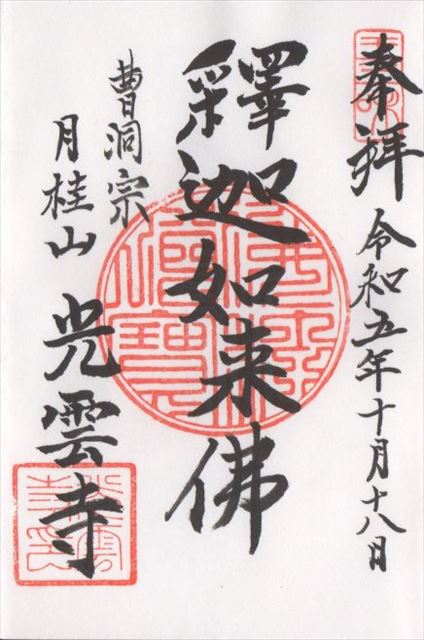 奉拝
令和五年十月十八日
釋迦如来佛
曹洞宗
月桂山
光雲寺